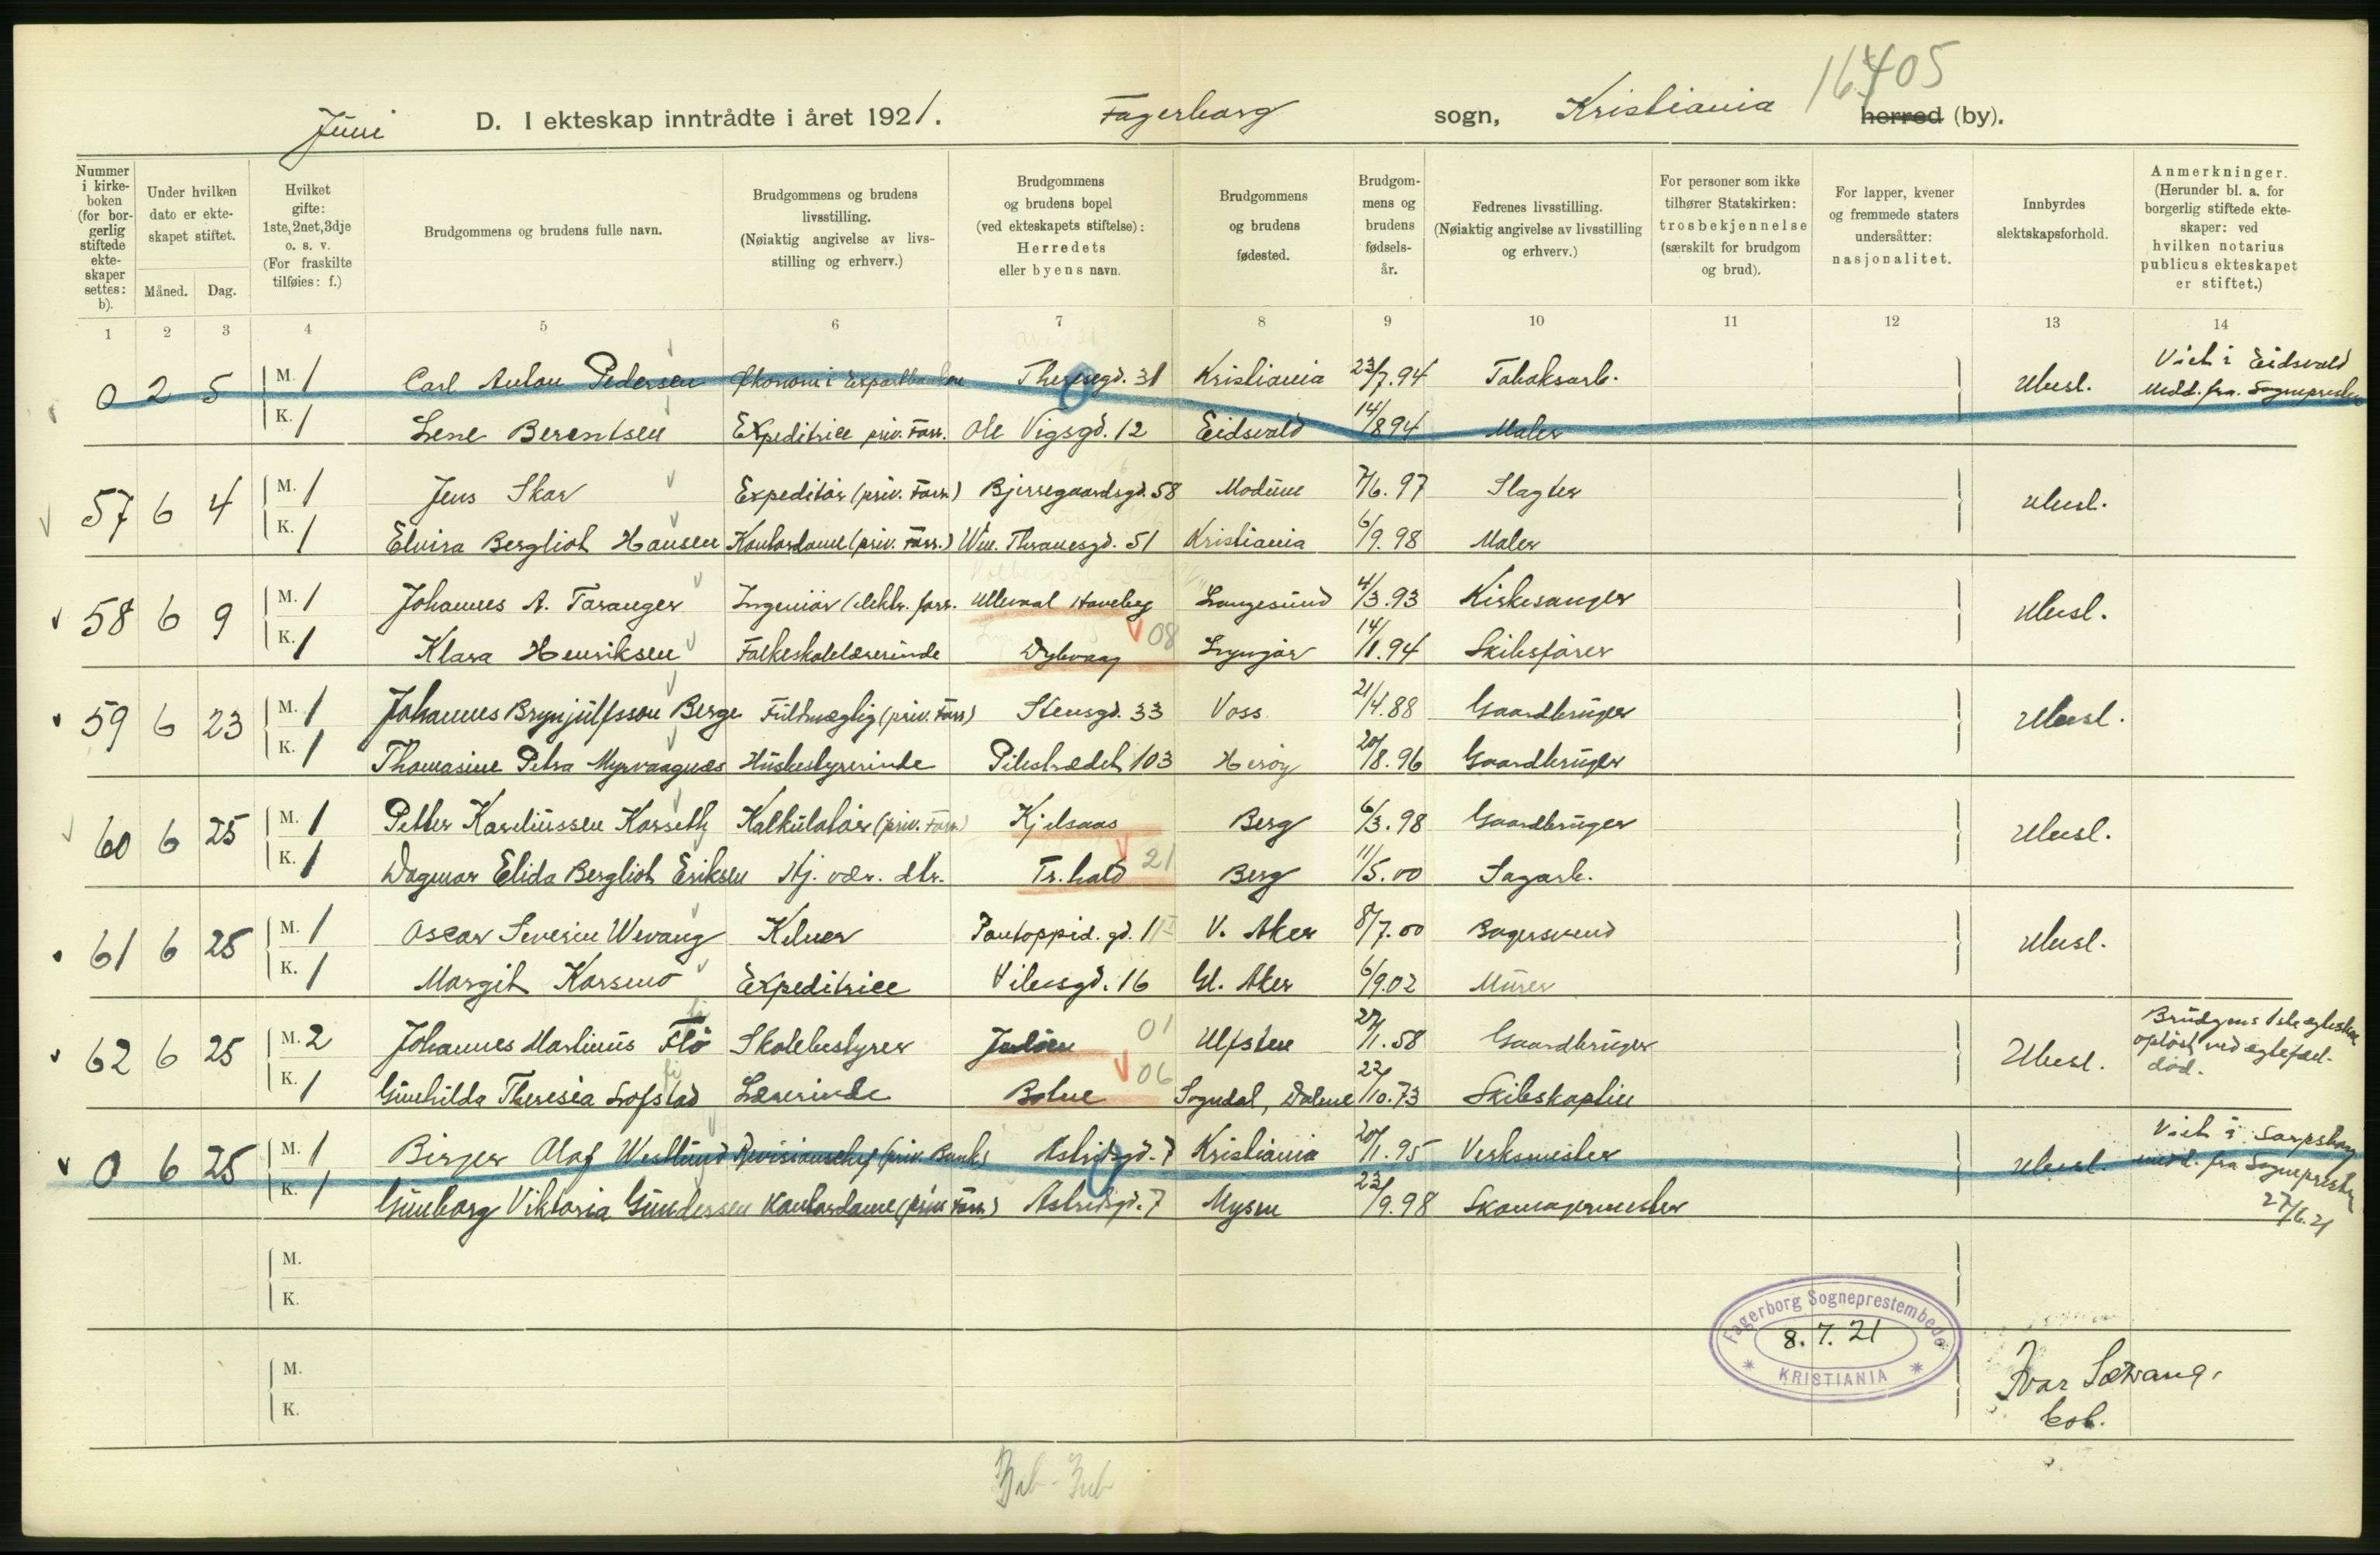 16405
Juni D. I ekteskap inntrådte i året 1921. Fagerborg sogn, Kristiania herred (by).
Nummer i kirke-boken (for bor-gerlig stiftede ekte-skaper settes: b).
Under hvilken dato er ekte-skapet stiftet.
Måned. Dag.
Hvilket gifte: 1ste, 2net, 3dje o. s. v. (For fraskilte tilføies: f.)
Brudgommens og brudens fulle navn.
Brudgommens og brudens livsstilling. (Nøiaktig angivelse av livs-stilling og erhverv.)
Brudgommens og brudens bopel (ved ekteskapets stiftelse): Herredets eller byens navn.
Brudgommens og brudens fødested.
Brudgom-mens og brudens fødsels-år.
Fedrenes livsstilling. (Nøiaktig angivelse av livsstilling og erhverv.)
For personer som ikke tilhører Statskirken: trosbekjennelse (særskilt for brudgom og brud).
For lapper, kvener og fremmede staters undersåtter: nasjonalitet.
Innbyrdes slektskapsforhold.
Anmerkninger. (Herunder bl. a. for borgerlig stiftede ekte-skaper: ved hvilken notarius publicus ekteskapet er stiftet.)
1 2 3 4 5 6 7 8 9 10 11 12 13 14
0 2 5 M. 1 Carl Anton Pedersen Theresegd. 31 Kristiania 23/7.94 Tobaksarb. Ubesl. Viet i Eidsvold medd. fra Sognepresten
K. 1 Lene Berentsen Expeditrice priv. Forr. Ole Vigsgd. 12 Eidsvold 14/8 94 Maler
57 6 4 M. 1 Jens Skar Expeditör (priv. Forr.) Bjerregaardsgd. 58 Modum 7/6.97 Slagter Ubesl.
K. 1 Elvira Bergliot Hansen Kontordame (priv. Forr.) Wm. Thranesgd. 51 Kristiania 6/9.98 Maler
58 6 9 M. 1 Johannes A. Taranger Ingeniör (elektr. forr. Ulleval Haveby Langesund 4/3.93 Kirkesanger Ubesl.
K. 1 Klara Henriksen Folkeskolelærerinde Dybvaag 08 Lyngör 14/1.94 Skibsförer
59 6 23 M. 1 Johannes Brynjulfsson Berge Fuldmægtig (priv. Forr) Stensgd. 33 Voss 21/4.88 Gaardbruger Ubesl.
K. 1 Thomasine Petra Myrvaagnes Husbestyrerinde Pilestrædet 103 Heröy 20/8.96 Gaardbruger
60 6 25 M. 1 Petter Kareliussen Korseth Kalkulatör (priv. Forr) Kjelsaas Berg 6/3.98 Gaardbruger Ubesl.
K. 1 Dagmar Elida Bergliot Eriksen Hj. vær. dtr. Fr.hald 21 Berg 11/5.00 Sagarb.
61 6 25 M. 1 Oscar Severin Wevang Kelner Pontoppid. gd. 11 V. Aker 8/7.00 Bagersvend Ubesl.
K. 1 Margit Korsmo Expeditrice Vibesgd. 16 Gl. Aker 6/9.02 Murer
62 6 25 M. 2 Johannes Martinus Flö Skolebestyrer Jeløen 01 Ulfsten 27/1.58 Gaardbruger Ubesl. Brudgoms 1ste egteskap oplöst ved egtefæl. död.
K. 1 Gunhilda Theresia Lofstad Lærerinde Bolne 06 Sogndal, Dalene 22/10.73 Skibskaptein
0 6 25 M. 1 Birger Olaf Westlund Revisionschef (priv. Bank) Astridsgd. 7 Kristiania 20/1.95 Verksmester Ubesl. Viet i Sarpsborg medd. fra Sognepresten 27/6.21
K. 1 Gunborg Viktoria Gundersen Kontordame (priv. Forr) Astridsgd. 7 Mysen 23/9.98 Skomagermester
M.
K.
M.
K.
Fagerborg Sogneprestembede
8.7.21
KRISTIANIA
Ivar Sætrang.